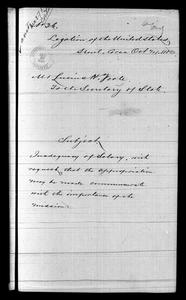 Legation of the United States
Seoul, Corea Oct
Mr Lucius H. Foote
To the Secretary of State
Subject
Inadequacy of Salary, with
request that the appropriation
may be made commensurate
with the importance of the
mission